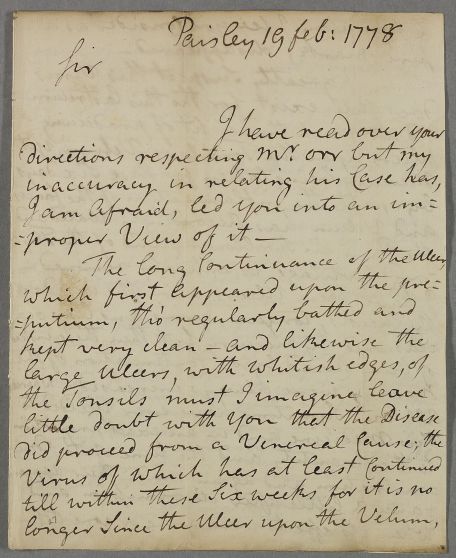 Paisley 19 feb: 1778
Sir
I have read over your
directions respecting Mr. orr but my
inaccuracy in relating his Case has,
I am Afraid, led you into an im=
=proper View of it —
The long Continuance of the Ulcer,
which first appeared upon the pre=
=putium, tho' regularly bathed and
kept very clean – and likewise the
large Ulcers, with whitish edges, of
the Tonsils must I imagine leave
little doubt with You that the Disease
did proceed from a Venereal Cause; the
Virus of which has at least Continued
till within these Six weeks for it is no
longer Since the Ulcer upon the Velum,